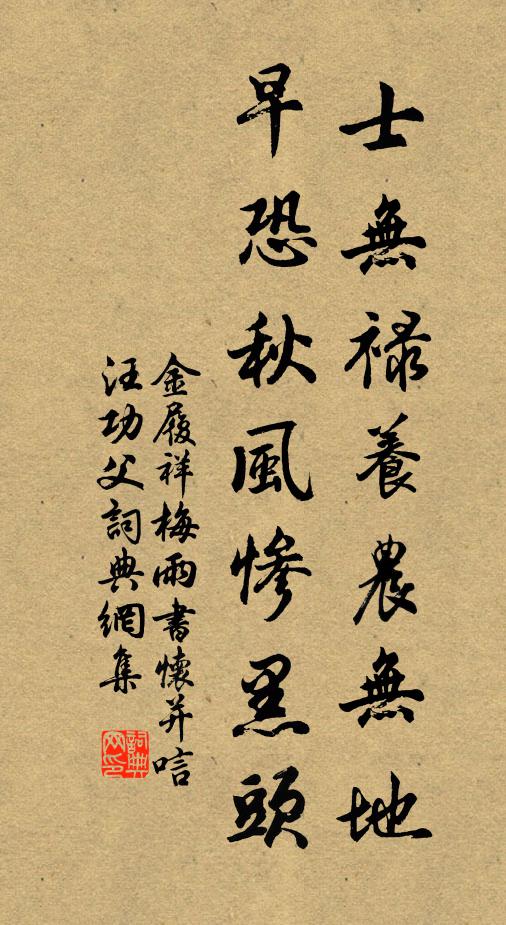 士無祿養農無地
早恐秋風慘黑頭
金履祥梅雨書懷并唁
汪功父詞典網集
詞典網印